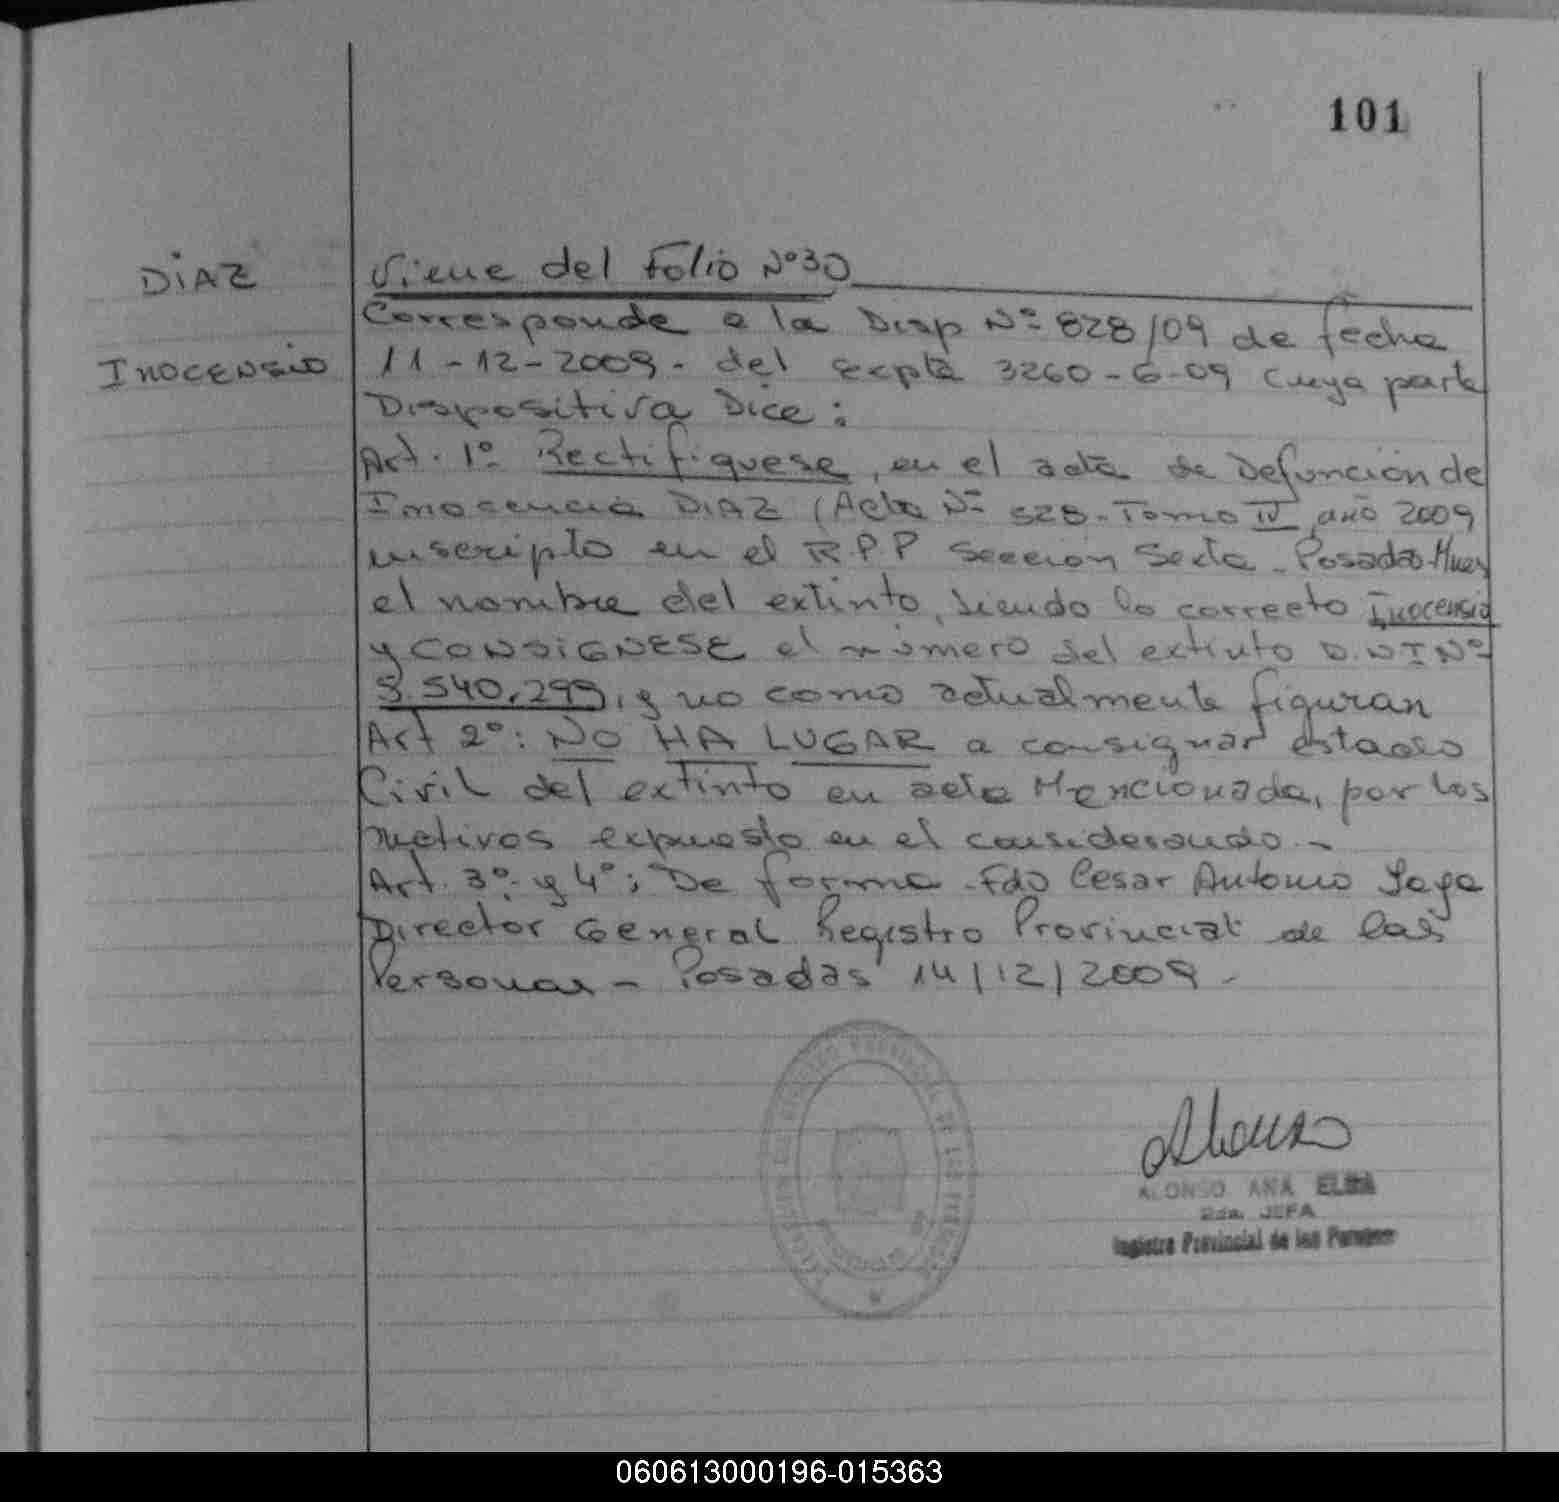 101
DiAZ
INOCENSIO
Viene del Folio Nº30
Corresponde a la Disp Nº 828/09 de fecha
11-12-2009. del expte 3260-6-09 cuya parte
Dispositiva Dice:
Art. 1º Rectifiquese, en el acta de Defunción de
Inocencia DIAZ (Acta Nº 528. Tomo IV año 2009
inscripto en el R.P.P Seccion Sexta - Posadas
el nombre del extinto, siendo lo correcto Inocensio
y CONSIGNESE el número del extinto D.N I Nº
.540.299, y no como actualmente figuran
Art 2º: NO HA LUGAR a consignar estado
Civil del extinto en acta Mencionada, por los
motivos expuesto en el considerando.-
Art. 3º y 4º: De forma - Fdo Cesar Antonio
Director General Registro Provincial de las
Personas - Posadas 14/12/2009 -
REGISTRO PROVINCIAL DE LAS PERSONAS
ALONSO ANA ELBA
2da. JEFA
Registro Provincial de las Personas
060613000196-015363